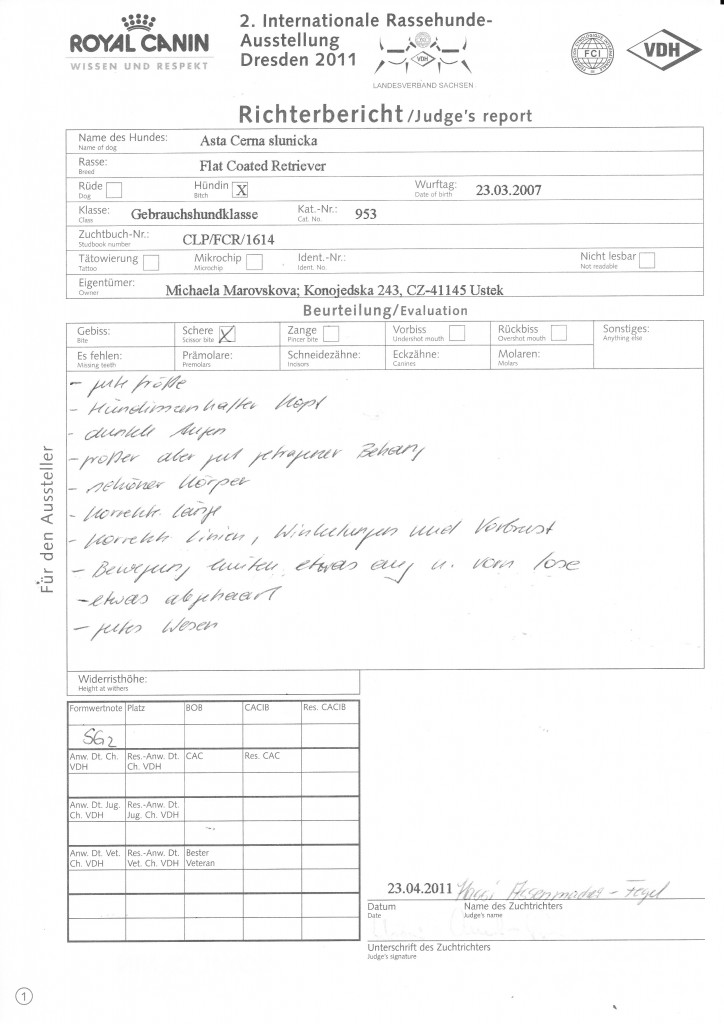 ROYAL CANIN
WISSEN UND RESPEKT
2. Internationale Rassehunde-
Ausstellung
Dresden 2011
VDH
LANDESVERBAND SACHSEN
FCI
VDH
Richterbericht/Judge's report
Name des Hundes: Asta Cerna slunicka
Name of dog
Rasse: Flat Coated Retriever
Breed
Rüde Hündin X Wurftag: 23.03.2007
Dog Bitch Date of birth
Klasse: Gebrauchshundklasse Kat.-Nr.: 953
Class Cat. No.
Zuchtbuch-Nr.: CLP/FCR/1614
Studbook number
Tätowierung Mikrochip Ident.-Nr.: Nicht lesbar
Tattoo Microchip Ident. No. Not readable
Eigentümer: Michaela Marovskova; Konojedska 243, CZ-41145 Ustek
Owner
Beurteilung/Evaluation
Gebiss: Schere X Zange Vorbiss Rückbiss Sonstiges:
Bite Scissor bite Pincer bite Undershot mouth Overshot mouth Anything else
Es fehlen: Prämolare: Schneidezähne: Eckzähne: Molaren:
Missing teeth Premolars Incisors Canines Molars
Für den Aussteller
- gute Größe
- Hündinnenhafter Kopf
- dunkle Augen
- großer aber gut getragener Behang
- schöner Körper
- korrekte Länge
- korrekte Linien, Winkelungen und Vorbrust
- Bewegung hinten etwas eng u. vorn lose
- etwas abgehaart
- gutes Wesen
Widerristhöhe:
Height at withers
Formwertnote Platz BOB CACIB Res. CACIB
SG2
Anw. Dt. Ch. VDH Res.-Anw. Dt. Ch. VDH CAC Res. CAC
Anw. Dt. Jug. Ch. VDH Res.-Anw. Dt. Jug. Ch. VDH
Anw. Dt. Vet. Ch. VDH Res.-Anw. Dt. Vet. Ch. VDH Bester Veteran
23.04.2011 Assenmacher-Feyel
Datum Name des Zuchtrichters
Date Judge's name
Unterschrift des Zuchtrichters
Judge's signature
1